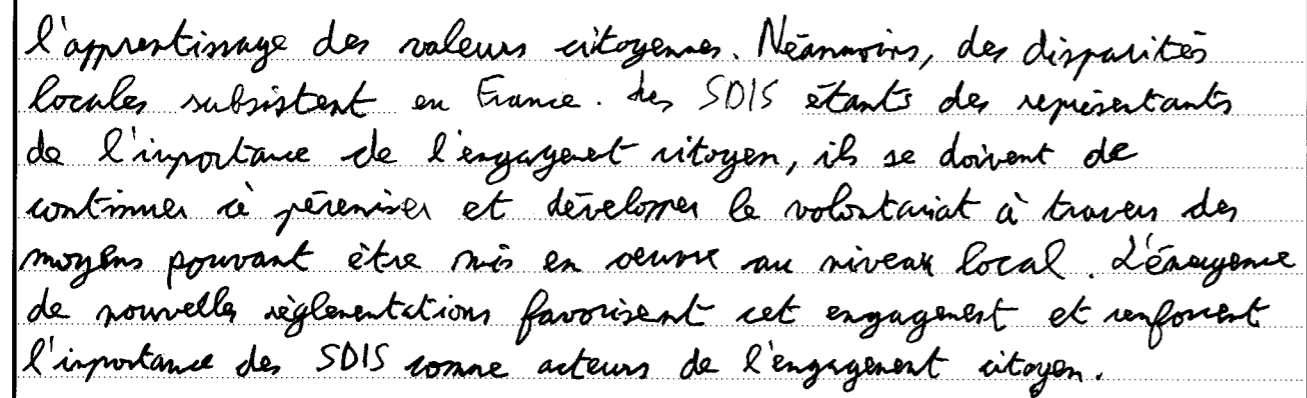 l'apprentissage des valeurs citoyennes. Néanmoins, des disparités
locales subsistent en France. Les SDIS étants des représentants
de l'importance de l'engagement citoyen, ils se doivent de
continuer à péreniser et développer le volontariat à travers des
moyens pouvant être mis en oeuvre au niveau local. L'émergence
de nouvelles règlementations favorisent cet engagement et renforcent
l'importance des SDIS comme acteurs de l'engagement citoyen.